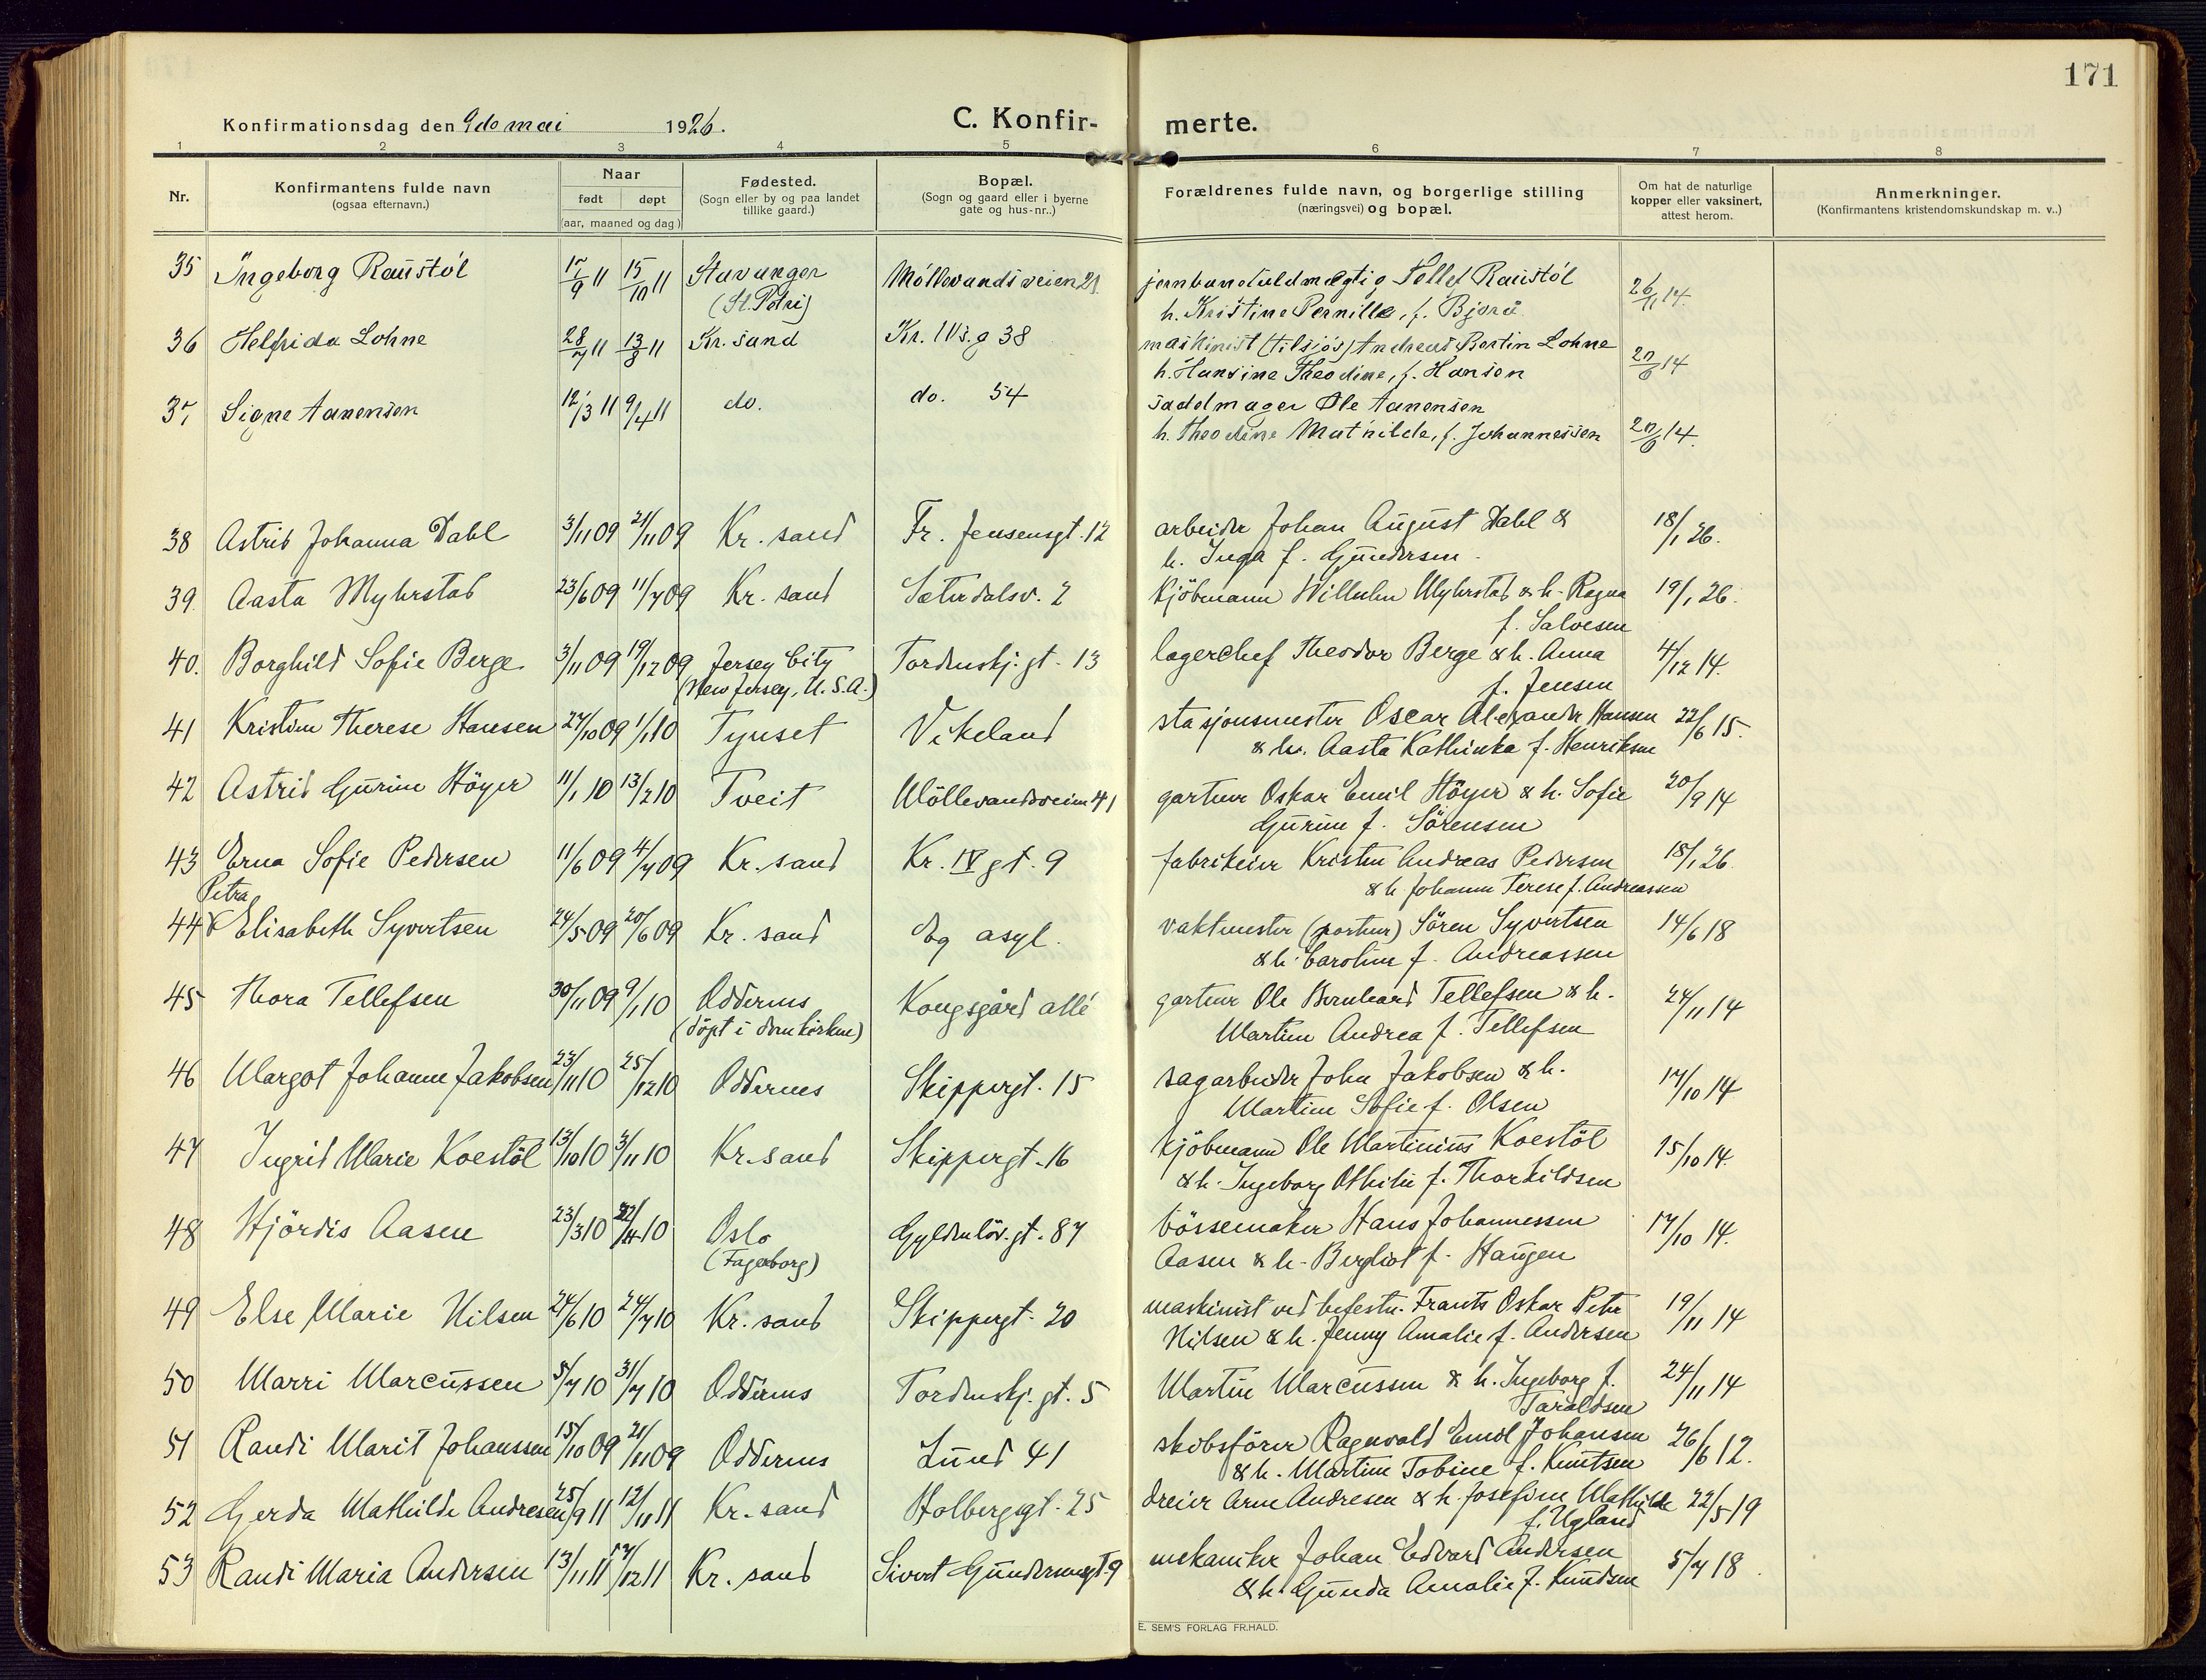 171
Konfirmationsdag den 9do mai 1926.
C. Konfir-
merte.
1 2 3 4 5 6 7 8
Nr.
Konfirmantens fulde navn
(ogsaa efternavn.)
Naar
født døpt
(aar, maaned og dag)
Fødested.
(Sogn eller by og paa landet
tillike gaard.)
Bopæl.
(Sogn og gaard eller i byerne
gate og hus-nr..)
Forældrenes fulde navn, og borgerlige stilling
(næringsvei) og bopæl.
Om hat de naturlige
kopper eller vaksinert,
attest herom.
Anmerkninger.
(Konfirmantens kristendomskundskap m. v..)
35 Ingeborg Raustöl 15/10 11 Stavanger Möllevandsveien 21 jernbanefuldmegtig Tellef Raustöl 26/11 14.
(St. Petri) h. Kristine Pernille, f. Bjorå
36 Helfrida Lohne 28/7 11 13/8 11 Kr. sand Kr. IV s. g 38 maskinist (tilsjøs) Andreas Bertin Lohne
h. Hansine Theodine, f. Hansen 14
37 Signe Aanensen 12/3 11 9/4 11 do. do. 54 sadelmager Ole Aanensen
h. Theodine Mathilde, f. Johannessen 14.
38 Astrid Johanna Dahl 3/11 09 21/11 09 Kr. sand Fr. Jensensgt. 12 arbeider Johan August Dahl & 18/1 26.
h. Inga f. Gundersen.
39. Aasta Myhrstad 23/6 09 11/7 09 Kr. sand Setesdalsv. 2 Kjöbmann Wilhelm Myhrstad & h. Ragna 19/1 26.
f. Salvesen
40. Borghild Sofie Berge 3/11 09 19/12 09 Jersey City Tordenskj. gt. 13 lagerchef Theodor Berge & h. Anna 4/12 14.
(New Jersey, U. S. A.) f. Jensen
41 Kristine Therese Hansen 27/10 09 1/1 10 Tynset Vikeland stasjonsmester Oscar Alexander Hansen 22/6 15.
& h. Aasta Kathinka f. Henriksen
42 Astrid Gurine Höyer 11/1 10 13/2 10 Tveit Möllevandsveien 41 gartner Oskar Emil Höyer & h. Sofie 20/9 14
Gurine f. Sörensen
43 Erna Sofie Pedersen 11/6 09 4/7 09 Kr. sand Kr. IV gt. 9 fabrikeier Kristen Andreas Pedersen 18/1 26.
& h. Johanne Terese f. Andreassen
Petra
44 Elisabeth Syvertsen 24/5 09 20/6 09 Kr. sand Eg asyl. vaktmester (portner) Sören Syvertsen 14/6 18
& h. Caroline f. Andreassen
45 Thora Tellefsen 30/11 09 9/1 10 Oddernes Kongsgård allé gartner Ole Bernhard Tellefsen & h. 24/11 14
(döpt i domkirken) Martine Andrea f. Tellefsen
46 Margot Johanne Jakobsen 23/11 10 25/12 10 Oddernes Skippergt. 15 sagarbeider John Jakobsen & h. 17/10 14
Martine Sofie f. Olsen
47 Ingrid Marie Koestöl 13/10 10 3/11 10 Kr. sand Skippergt. 16 kjöbmann Ole Martinius Koestöl 15/10 14.
& h. Ingeborg Othilie f. Thorkildsen
48 Hjördis Aasen 23/3 10 10 Oslo Gyldenlöv. gt. 87 bössemaker Hans Johannessen 17/10 14.
(Fagerborg) Aasen & h. Bergliot f. Haugen
49 Else Marie Nilsen 24/6 10 24/7 10 Kr. sand Skippergt. 20 maskinist ved befestn. Frants Oskar Peter 19/11 14
Nilsen & h. Jenny Amalie f. Andersen
50 Marri Marcussen 5/7 10 31/7 10 Oddernes Tordenskj. gt. 5 Martin Marcussen & h. Ingeborg f. 24/11 14
Taraldsen
51 Randi Marit Johanssen 15/10 09 21/11 09 Oddernes Lund 41 skibsförer Ragnvald Emil Johansen 26/6 12.
& h. Martine Tobine f. Knutsen
52 Gerda Mathilde Andresen 25/9 11 12/11 11 Kr. sand Holbergsgt. 25 dreier Arne Andresen & h. Josefine Mathilde 22/5 19
f. Ugland
53 Randi Maria Andersen 13/11 11 17/12 11 Kr. sand Sivert Gundersensgt. 9 mekaniker Johan Edvard Andersen 5/7 18.
& h. Gunda Amalie f. Knudsen
E. SEM'S FORLAG FR.HALD.